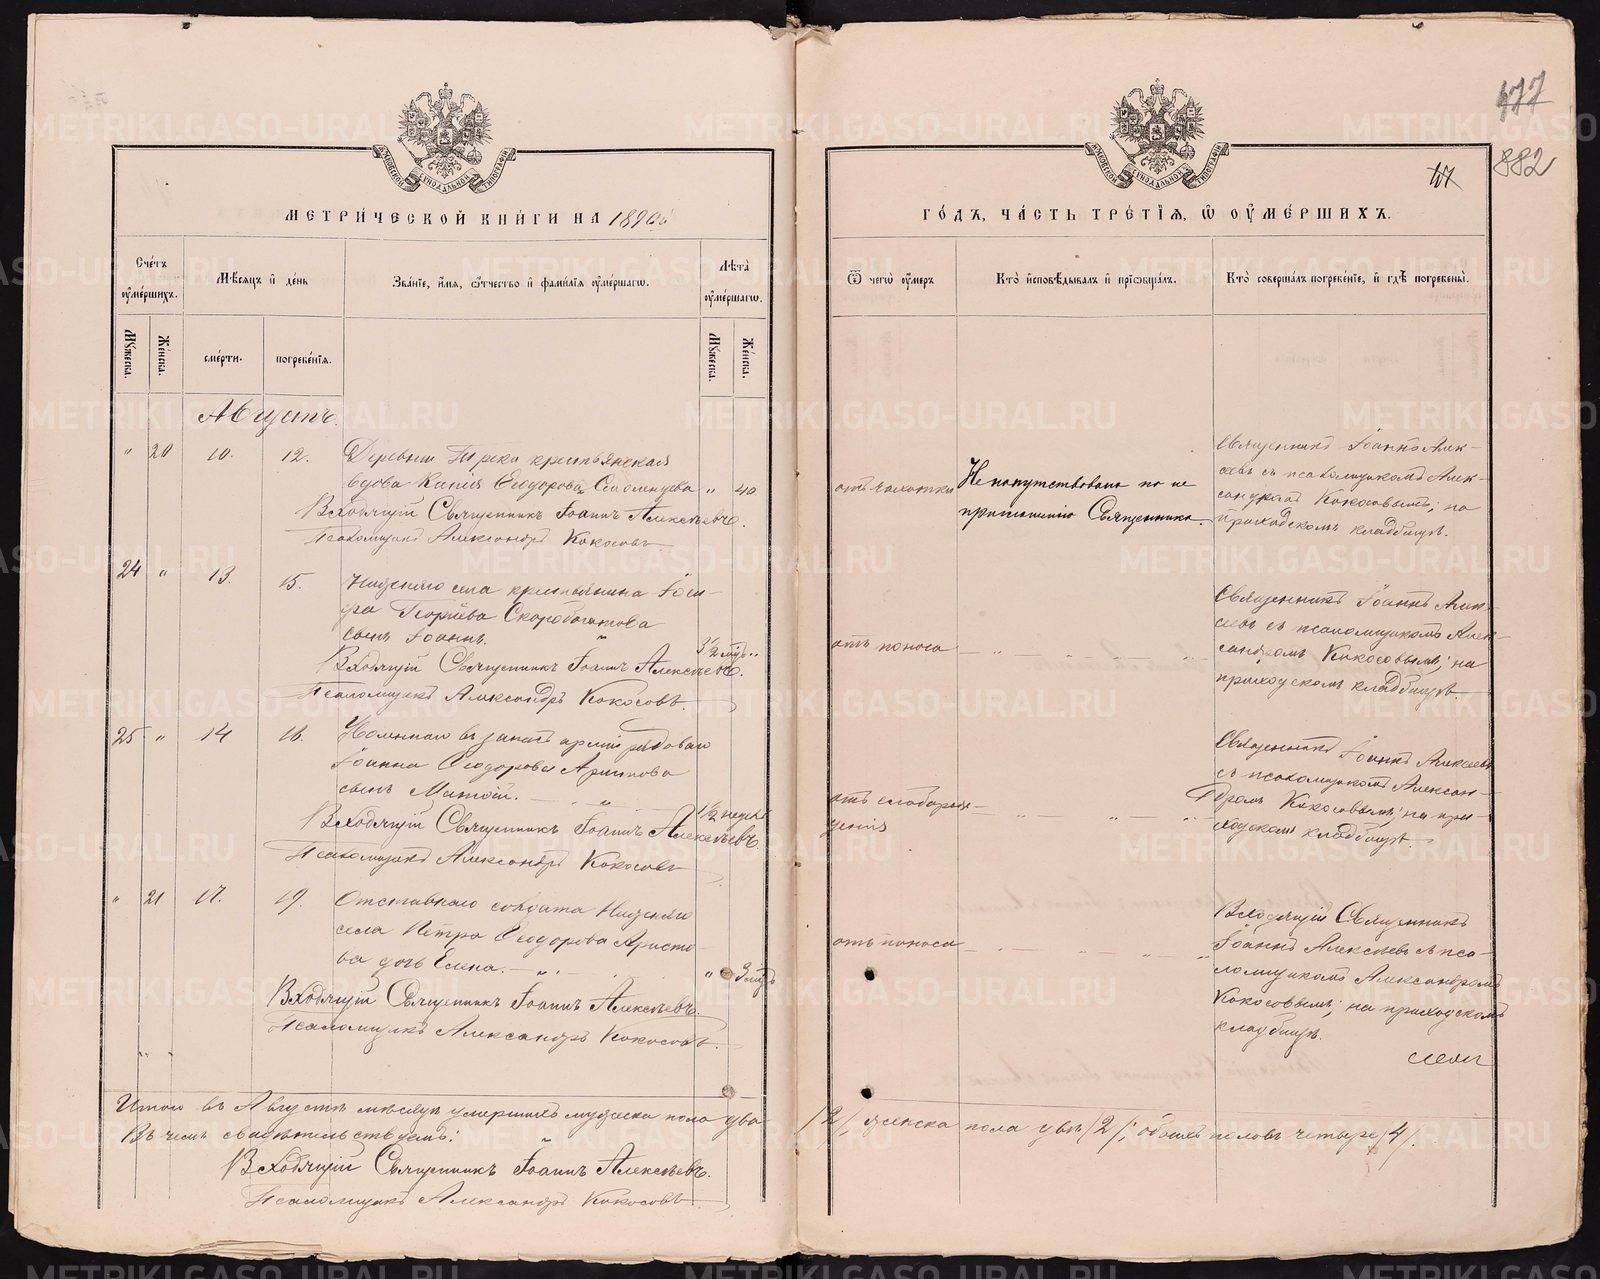 477
882
МЕТРИ́ЧЕСКОЙ КНИ́ГИ НА 1890
ГО́ДЪ, ЧА́СТЬ ТРЕ́ТЇѦ, Ѿ ОУМЕ́РШИХЪ.
Сче́тъ оуме́ршихъ.
Мѣ́сѧцъ и де́нь
Зва́нїе, и́мѧ, ѻ́тчество и фами́лїѧ оуме́ршагѡ.
Лѣ́та оуме́ршагѡ.
Ѿ чегѡ̀ оу́меръ
Кто̀ исповѣ́дывалъ и прїѡбща́лъ.
Кто̀ соверша́лъ погребе́нїе, и гдѣ̀ погребены̀.
Мꙋ́жеска.
Же́нска.
сме́рти.
погребе́нїѧ.
Мꙋ́жеска.
Же́нска.
Августъ.
" 20 10. 12. Деревни крестьянская
вдова Ѳеодорова " 40
Входящій Священникъ Іоаннъ Алексѣевъ.
Псаломщикъ Александръ Кокосовъ
отъ чахотки
Не напутствована по не
приглашенію Священника.
Священникъ Іоаннъ Алек-
сѣевъ съ псаломщикомъ Алек-
сандромъ Кокосовымъ; на
приходскомъ кладбищѣ.
24 " 13. 15. Ницинскаго села крестьянина Іоси-
фа Георгіева Скоробогатова
сынъ Іоаннъ.
Входящій Священникъ Іоаннъ Алексѣевъ.
Псаломщикъ Александръ Кокосовъ.
отъ поноса
Священникъ Іоаннъ Алек-
сѣевъ съ псаломщикомъ Алек-
сандромъ Кокосовымъ; на
приходскомъ кладбищѣ.
25 " 14 16. въ запасѣ арміи рядоваго
Іоанна Ѳеодорова
сынъ
Входящій Священникъ Іоаннъ Алексѣевъ.
Псаломщикъ Александръ Кокосовъ
отъ слаборож-
денія
Священникъ Іоаннъ Алексѣевъ
съ псаломщикомъ Алексан-
дромъ Кокосовымъ; на при-
ходскомъ кладбищѣ.
" 21 17. 19. Отставнаго солдата Ницинскаго
села Петра Ѳеодорова Аристо-
ва дочь Елена.
Входящій Священникъ Іоаннъ Алексѣевъ.
Псаломщикъ Александръ Кокосовъ.
отъ поноса
Входящій Священникъ
Іоаннъ Алексѣевъ съ пса-
ломщикомъ Александромъ
Кокосовымъ; на приходскомъ
кладбищѣ.
Итого въ Августѣ мѣсяцѣ умершихъ мужеска пола два /2/, женска пола двѣ /2/; обоихъ половъ четыре /4/.
Въ чемъ свидѣтельствуемъ:
Входящій Священникъ Іоаннъ Алексѣевъ.
Псаломщикъ Александръ Кокосовъ
METRIKI.GASO-URAL.RU